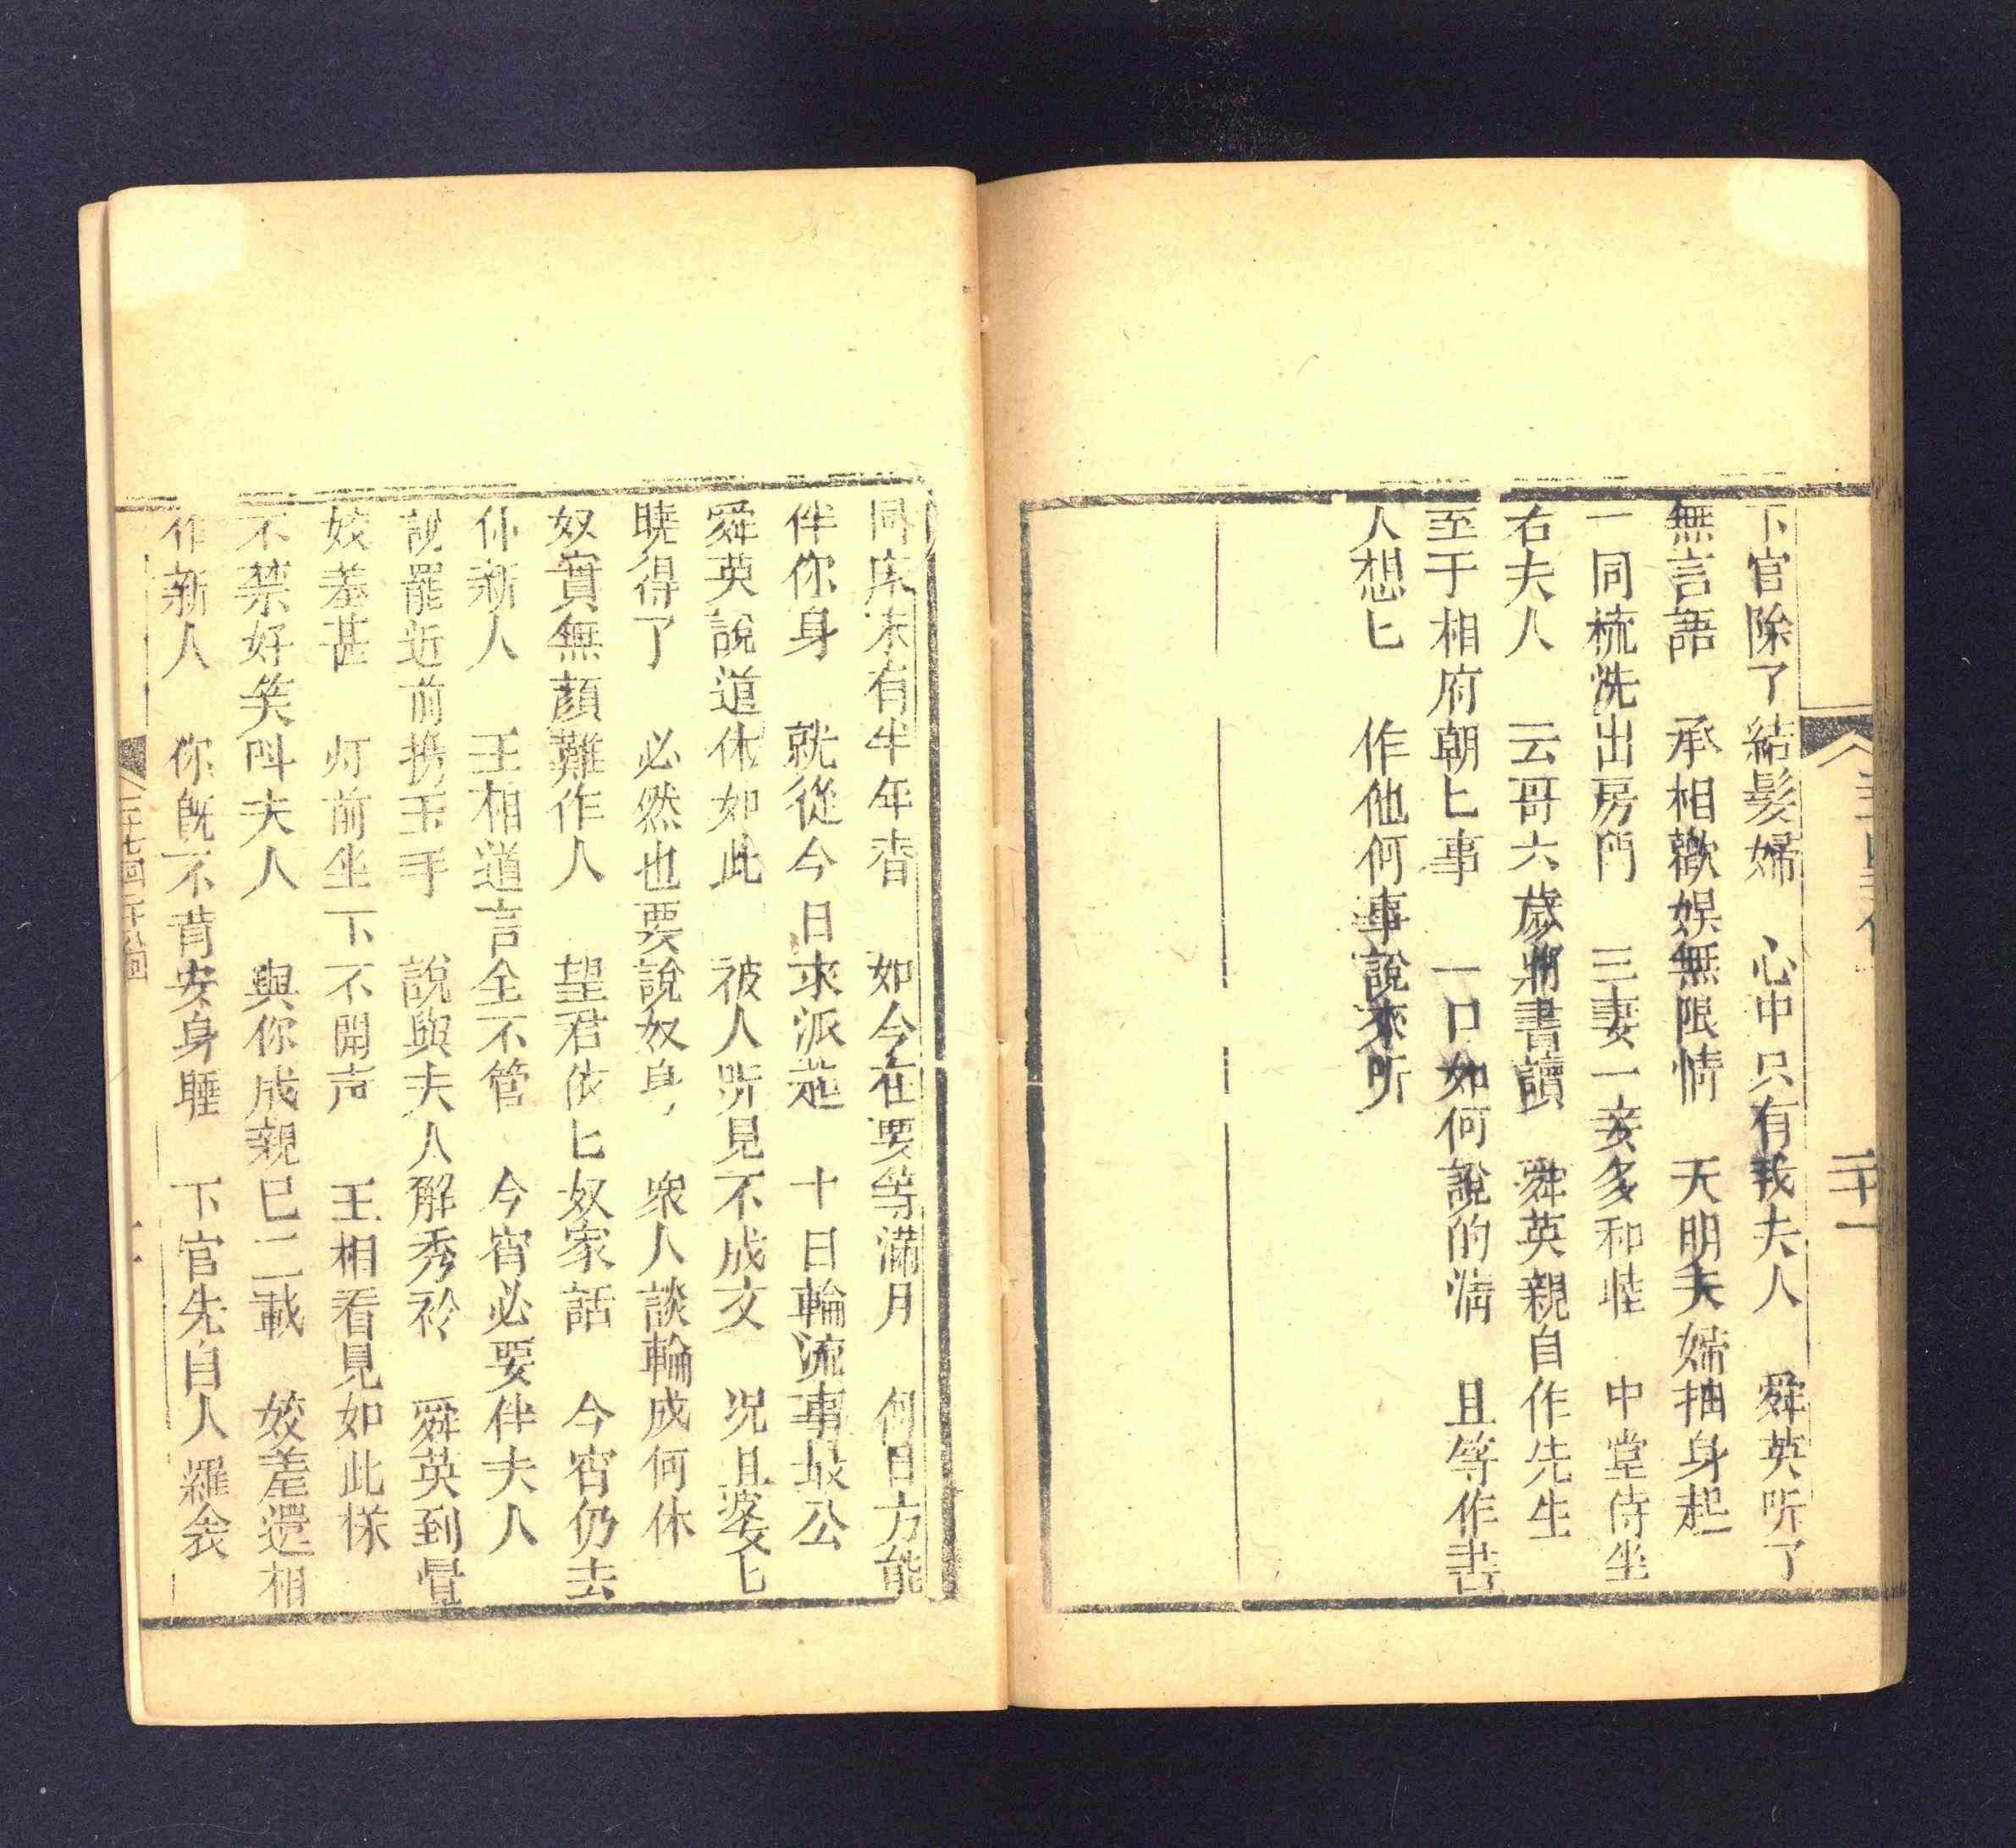 下官除了結髮婦　心中只有我夫人　舜英听了
無言語　承相歡娛無限情　天明夫婦抽身起
一同梳洗出房門　三妻一妾多和睦　中堂侍坐
右夫人　云哥六歲將書讀　舜英親自作先生
至于相府朝匕事　一口如何說的淸　且等作書
人想匕　作他何事說來听
二十一
同床未有半年春　如今在要等滿月　何日方能
伴你身　就從今日求派起　十日輪流事最公
舜英說道休如此　被人听見不成文　况且婆匕
曉得了　必然也要說奴身　衆人談輪成何休
奴實無顏難作人　望君依匕奴家話　今宵仍去
伴新人　王相道言全不管　今宵必要伴夫人
說罷近前携玉手　說與夫人解秀衿　舜英到覺
姣羞甚　灯前坐下不開声　王相看見如此様
不禁好笑呌夫人　與你成親已二載　姣羞還相
作新人　你旣不肯安身睡　下官先自人羅衾